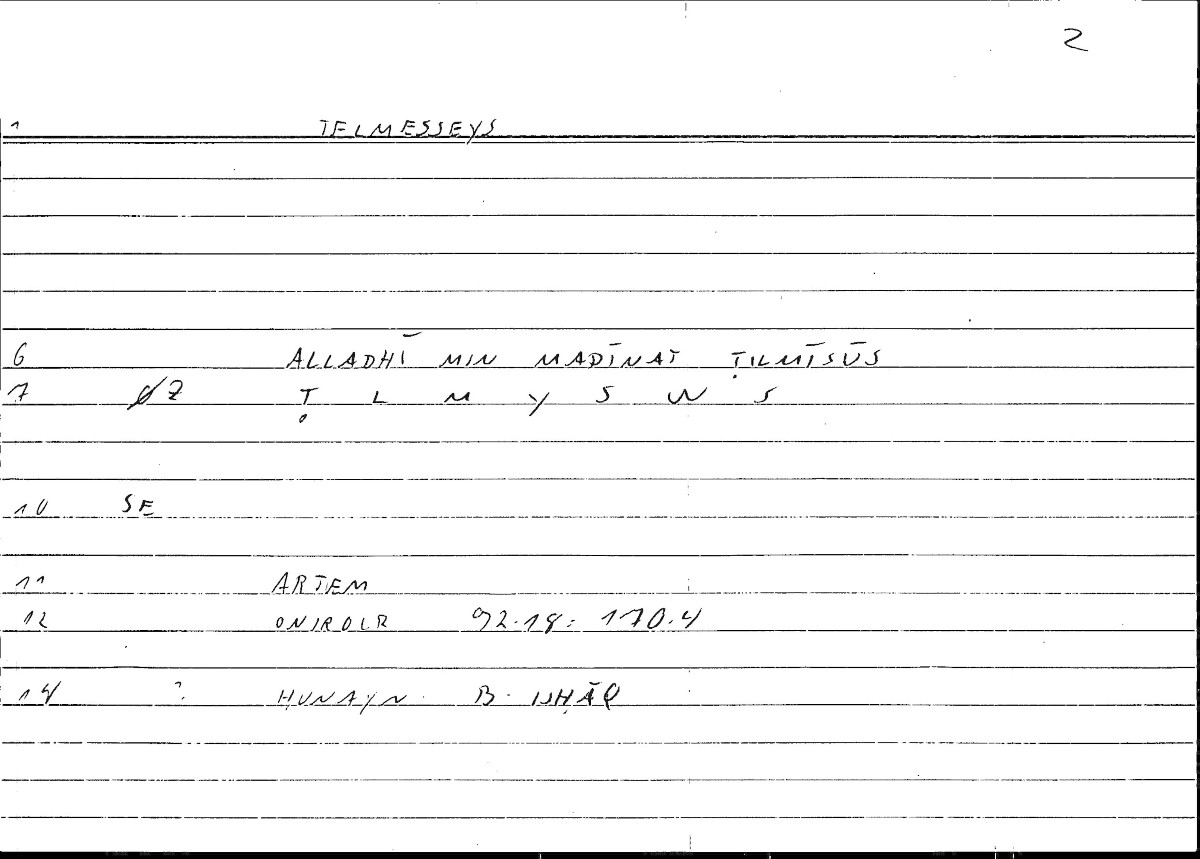 2
1 TELMESSEYS
6 ALLADHĪ MIN MADĪNAT ṬILMĪSŪS
7 Ø2 Ṭ L M Y S W S
10 SE
11 ARTEM
12 ONIROCR 92.18: 170.4
14 ? ḤUNAYN B. ISḤĀQ